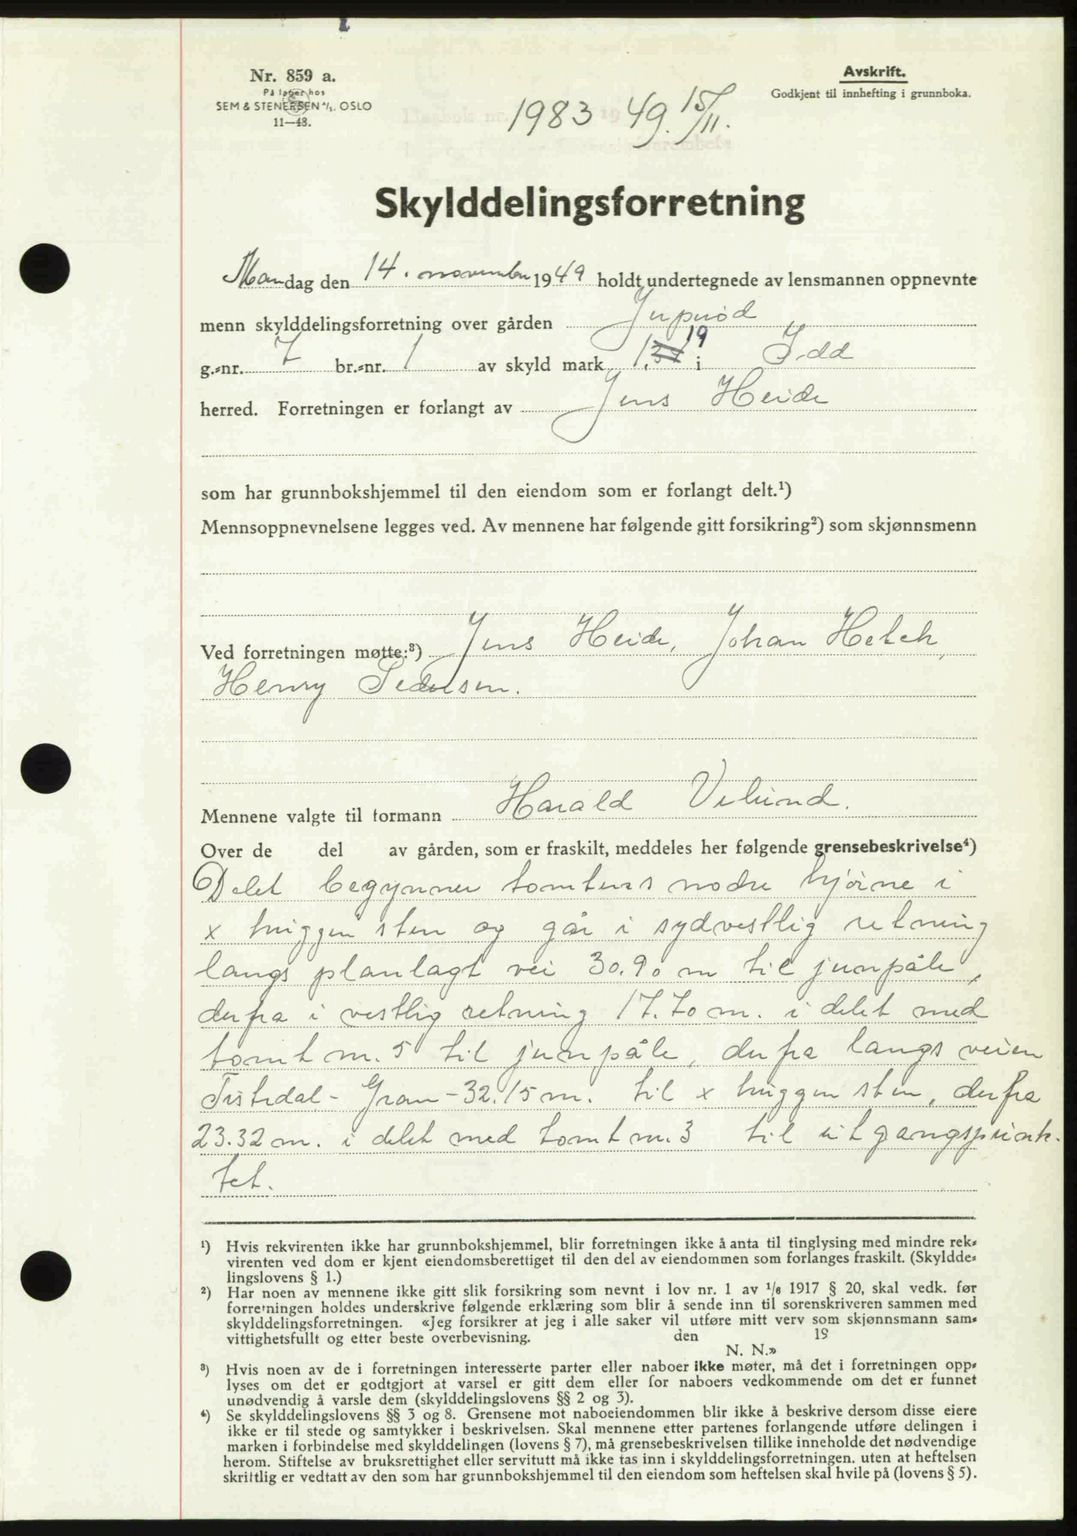 Nr. 859 a.
På lager hos
SEM & STENERSEN A/S. OSLO
11—48.
Avskrift.
Godkjent til innhefting i grunnboka.
1983 49. 15/11.
Skylddelingsforretning
Mandag den 14. november 1949 holdt undertegnede av lensmannen oppnevnte
menn skylddelingsforretning over gården
g.-nr. 7 br.-nr. 1 av skyld mark 1, 19 i Idd
herred. Forretningen er forlangt av Jens Heide
som har grunnbokshjemmel til den eiendom som er forlangt delt.¹)
Mennsoppnevnelsene legges ved. Av mennene har følgende gitt forsikring²) som skjønnsmenn
Ved forretningen møtte:³) Jens Heide, Johan
Henry Pedersen.
Mennene valgte til formann Harald
Over de del av gården, som er fraskilt, meddeles her følgende grensebeskrivelse⁴)
Delet begynner tomtens nodre hjørne i
x huggen sten og går i sydvestlig retning
langs planlagt vei 30.90 m til jernpåle,
derfra i vestlig retning 17.70 m. i delet med
tomt nr. 5 til jernpåle, derfra langs veien
Tistedal - Grav - 32.15 m. til x huggen sten, derfra
23.32 m. i delet med tomt nr. 3 til utgangspunk-
tet.
¹) Hvis rekvirenten ikke har grunnbokshjemmel, blir forretningen ikke å anta til tinglysing med mindre rek-
virenten ved dom er kjent eiendomsberettiget til den del av eiendommen som forlanges fraskilt. (Skyldde-
lingslovens § 1.)
²) Har noen av mennene ikke gitt slik forsikring som nevnt i lov nr. 1 av 1/6 1917 § 20, skal vedk. før
forretningen holdes underskrive følgende erklæring som blir å sende inn til sorenskriveren sammen med
skylddelingsforretningen. «Jeg forsikrer at jeg i alle saker vil utføre mitt verv som skjønnsmann sam-
vittighetsfullt og etter beste overbevisning. den 19
N. N.»
³) Hvis noen av de i forretningen interesserte parter eller naboer ikke møter, må det i forretningen opp-
lyses om det er godtgjort at varsel er gitt dem eller for naboers vedkommende om det er funnet
unødvendig å varsle dem (skylddelingslovens §§ 2 og 3).
⁴) Se skylddelingslovens §§ 3 og 8. Grensene mot naboeiendommen blir ikke å beskrive dersom disse eiere
ikke er til stede og samtykker i beskrivelsen. Skal mennene etter partenes forlangende utføre delingen i
marken i forbindelse med skylddelingen (lovens § 7), må grensebeskrivelsen tillike inneholde det nødvendige
herom. Stiftelse av bruksrettighet eller servitutt må ikke tas inn i skylddelingsforretningen. uten at heftelsen
skriftlig er vedtatt av den som har grunnbokshjemmel til den eiendom som heftelsen skal hvile på (lovens § 5).